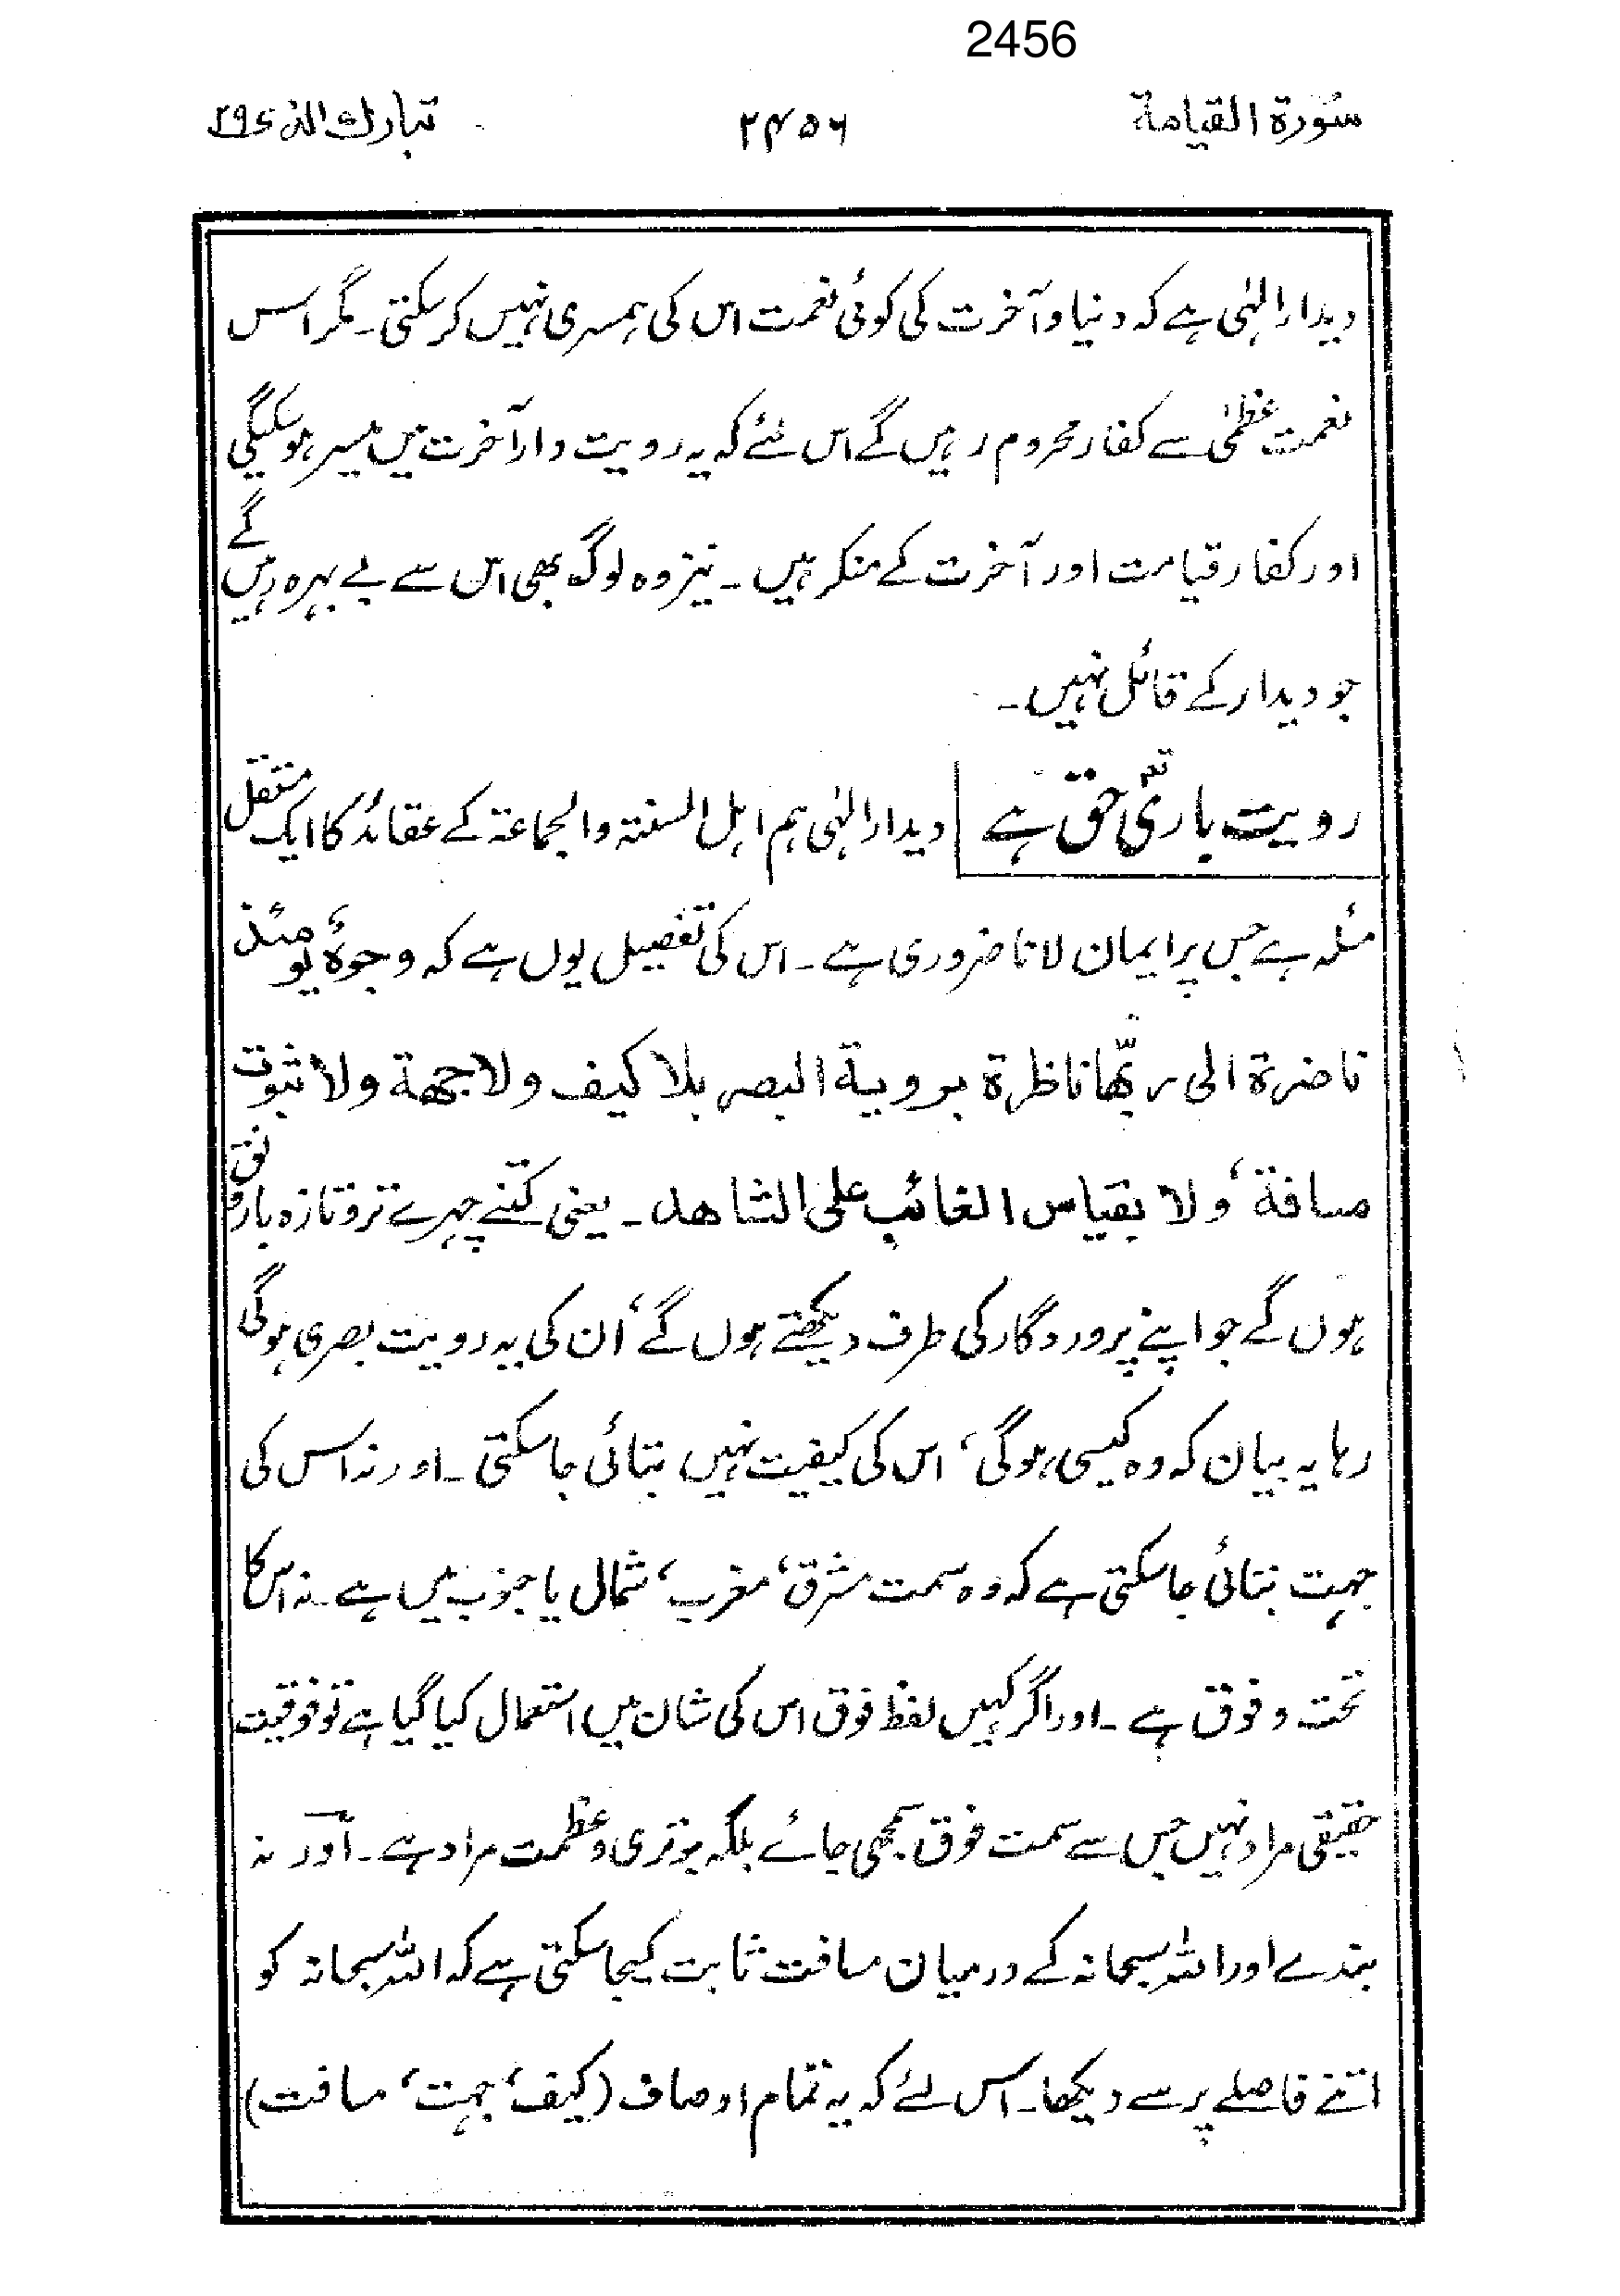 2456
سُورة القيامة ۲۴۵۶ تبارك الذى ۲۹
دیدار الٰہی ہے کہ دنیا و آخرت کی کوئی نعمت اس کی ہمسری نہیں کر سکتی۔ مگر اس
نعمت عظمیٰ سے کفار محروم رہیں گے اس لئے کہ یہ رویت دار آخرت میں میسر ہو سکیگی
اور کفار قیامت اور آخرت کے منکر ہیں۔ نیز وہ لوگ بھی اس سے بے بہرہ رہیں گے
جو دیدار کے قائل نہیں۔
رویت باریؒ تم حق ہے دیدار الٰہی ہم اہل السنتہ والجماعۃ کے عقائد کا ایک مستقل
مسئلہ ہے جس پر ایمان لانا ضروری ہے۔ اس کی تفصیل یوں ہے کہ وجوهٌ يومئذ
ناضرة الى ربّها ناظرة بروية البصر بلا كيف ولا جهة ولا ثبوت
مسافة، ولا بقياس الغائب على الشاهد۔ یعنی کتنے چہرے تر و تازہ بارونق
ہوں گے جو اپنے پروردگار کی طرف دیکھتے ہوں گے، اُن کی یہ رویت بصری ہوگی
رہا یہ بیان کہ وہ کیسی ہوگی، اس کی کیفیت نہیں بتائی جا سکتی۔ اور نہ اس کی
جہت بتائی جا سکتی ہے کہ وہ سمت مشرق، مغرب، شمال یا جنوب میں ہے۔ نہ اس کا
تحت و فوق ہے۔ اور اگر کہیں لفظ فوق اس کی شان میں استعمال کیا گیا ہے تو فوقیت
حقیقی مراد نہیں جس سے سمت فوق سمجھی جائے بلکہ برتری و عظمت مراد ہے۔ اور نہ
بندے اور اللہ سبحانہ کے درمیان مسافت ثابت کیجا سکتی ہے کہ اللہ سبحانہ کو
اتنے فاصلے پر سے دیکھا۔ اس لئے کہ یہ تمام اوصاف (کیف، جہت، مسافت)